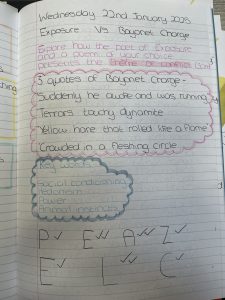 Wednesday 22nd January 2025
Exposure Vs Bayonet Charge
Explore how the poet of Exposure
and a poem of your choice
presents the theme of conflict
3 quotes of Bayonet Charge -
Suddenly he awoke and was running
Terrors touchy dynamite
Yellow hare that rolled like a flame
Crawled in a threshing circle
Key words
Social conditioning
Patriotism
Power
Animal instincts
P E A Z
E L C